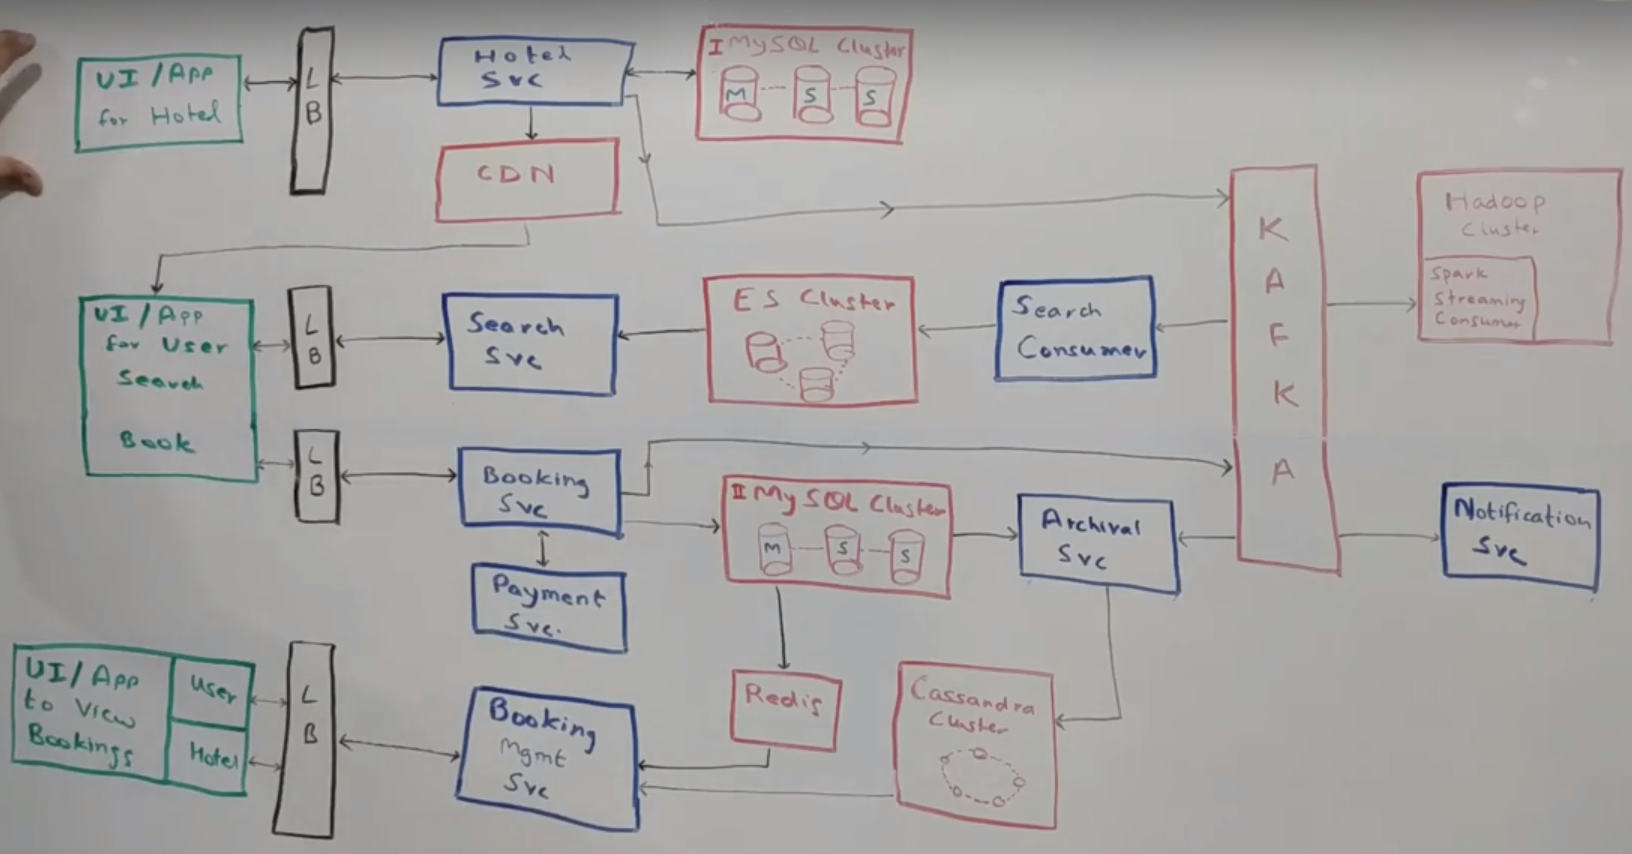 UI/App
for Hotel
L
B
Hotel
Svc
I MySQL Cluster
M
S
S
CDN
K
A
F
K
A
Hadoop
Cluster
Spark
Streaming
Consumer
UI/App
for User
Search
Book
L
B
Search
Svc
ES Cluster
Search
Consumer
L
B
Booking
Svc
II MySQL Cluster
M
S
S
Archival
Svc
Notification
Svc
Payment
Svc.
UI/App
to View
Bookings
User
Hotel
L
B
Booking
Mgmt
Svc
Redis
Cassandra
Cluster